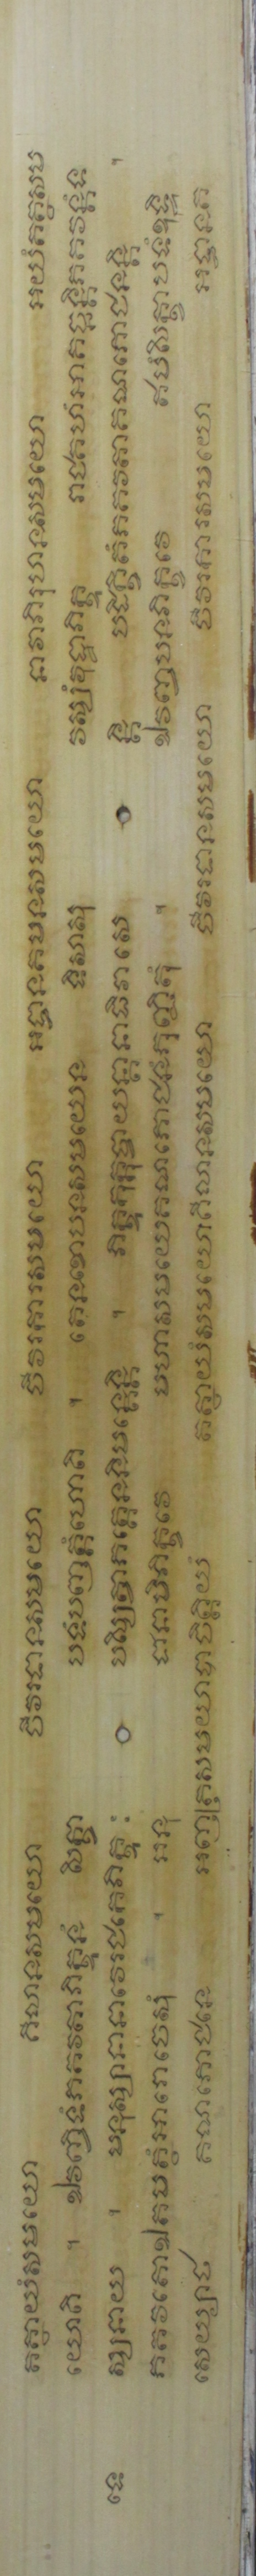 តត្ថាយំសមយោ គិលានសមយោ ចីវរទានសមយោ ចីវរការសមយោ អទ្ធានគមនសមយោ នាវាភិរុហនសមយោ អយំតត្ថសម
យោតិ ។ ឯវញ្ចិទំភគវតាភិក្ខូនំ សិក្ខា បទំបញ្ញត្តំហោតិ ។ តេនខោបនសមយេន ទិសាសុ វស្សំវុដ្ឋាភិក្ខូ រាជគហំអាគច្ឆន្តិភគវន្តំទ
ទេ ស្សនាយ ។ មនុស្សានានាវេរជ្ជកេភិក្ខូ បស្សិត្វាភត្តេននិមន្តេន្តិ ។ ភិក្ខូកុក្កុច្ចាយន្តានាធិវាសេ ន្តិ បដិក្ខិត្តំភគវតាគណភោជនន្តិ ។
ភគវតោឯតមត្ថំអារោចេសុំ ។ អនុ ជានាមិភិក្ខវេ មហាសមយេគណភោជនំភុញ្ជិតុំ ។ ឯវញ្ចបនភិក្ខវេ ឥមំសិក្ខាបទំឧទ្ទិ
សេយ្យាថ គណភោជនេ អញ្ញត្រសមយាបាចិត្តិយំ តត្ថាយំសមយោគិលានសមយោ ចីវរទានសមយោ ចីវរការសមយោ អទ្ធានគ